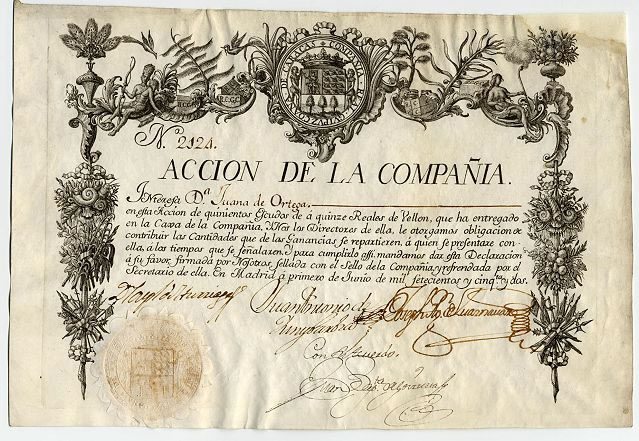 N. 2121.
ACCION DE LA COMPAÑIA.
INteresa Dª Juana de Ortega
en esta Accion de quinientos Escudos de à quinze Reales de Vellon, que ha entregado
en la Caxa de la Compañia, i Nos los Directores de ella, le otorgamos obligacion de
contribuir las Cantidades que de las Ganancias se repartieren, à quien se presentare con
ella, à los tiempos que se señalaren. I para cumplirlo assi, mandamos dar esta Declaracion
à su favor, firmada por Nosotros, sellada con el Sello de la Compañia y refrendada por el
Secretario de ella. En Madrid à primero de Junio de mil setecientos y cinqta y dos.
Con Acuerdo.